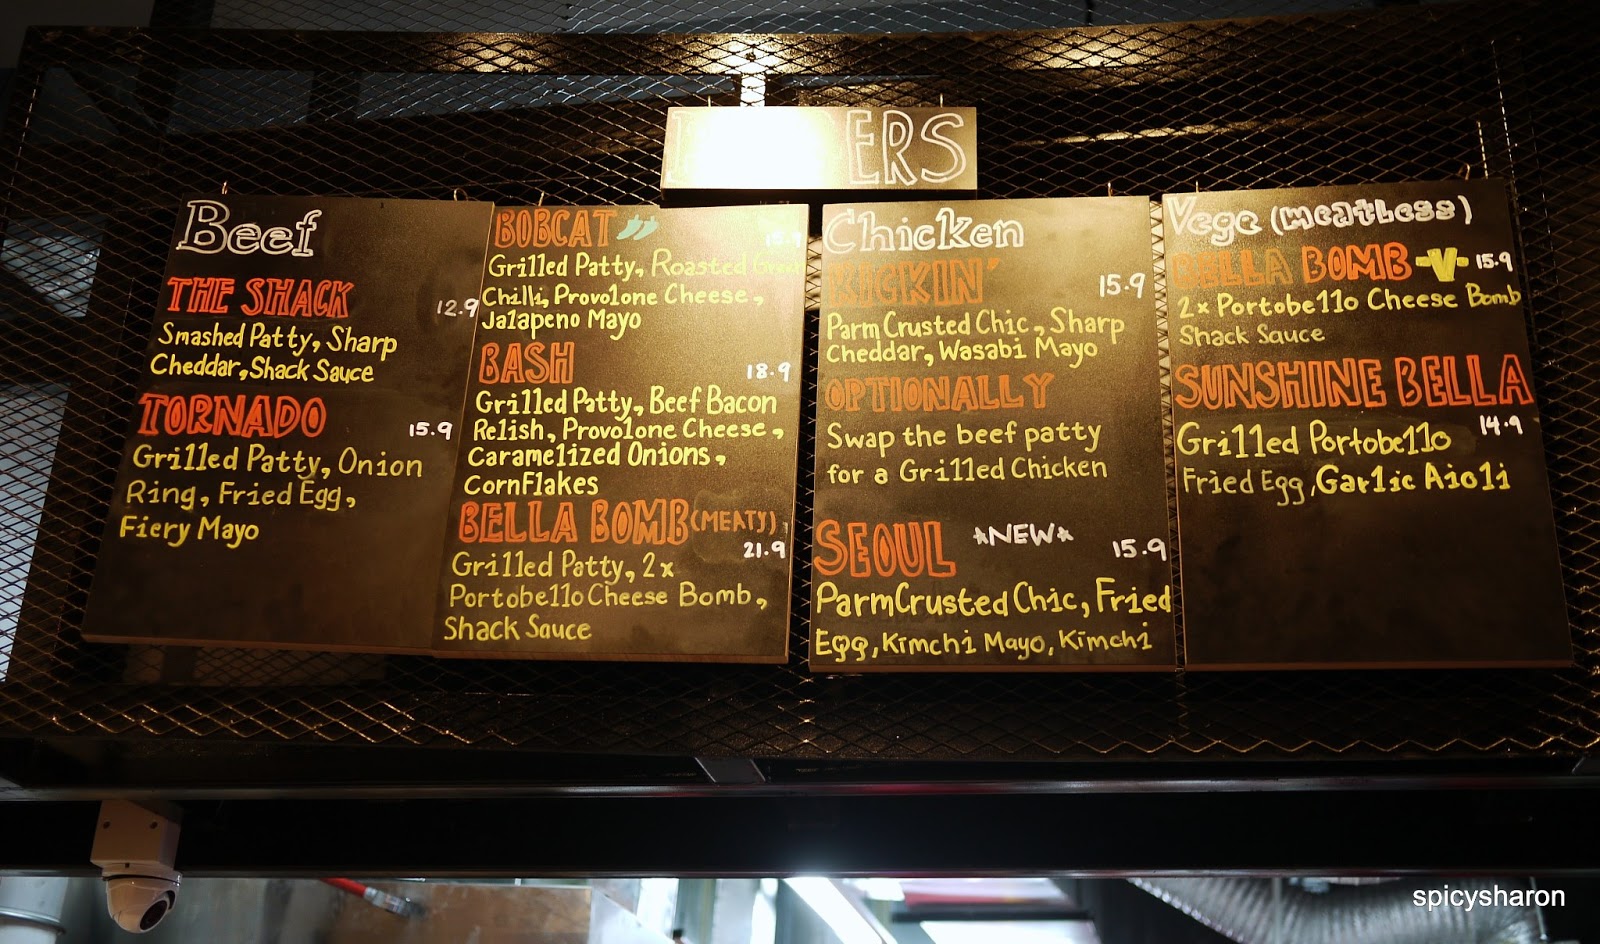 ERS
Beef
THE SHACK 12.9
Smashed Patty, Sharp
Cheddar, Shack Sauce
TORNADO 15.9
Grilled Patty, Onion
Ring, Fried Egg,
Fiery Mayo
BOBCAT 15.9
Grilled Patty, Roasted Green
Chilli, Provolone Cheese,
Jalapeno Mayo
BASH 18.9
Grilled Patty, Beef Bacon
Relish, Provolone Cheese,
Caramelized Onions,
CornFlakes
BELLA BOMB (MEATY) 21.9
Grilled Patty, 2x
Portobello Cheese Bomb,
Shack Sauce
Chicken
KICKIN' 15.9
Parm Crusted Chic, Sharp
Cheddar, Wasabi Mayo
OPTIONALLY
Swap the beef patty
for a Grilled Chicken
SEOUL *NEW* 15.9
Parm Crusted Chic, Fried
Egg, Kimchi Mayo, Kimchi
Vege (meatless)
BELLA BOMB -V- 15.9
2x Portobello Cheese Bomb
Shack Sauce
SUNSHINE BELLA
14.9
Grilled Portobello
Fried Egg, Garlic Aioli
spicysharon